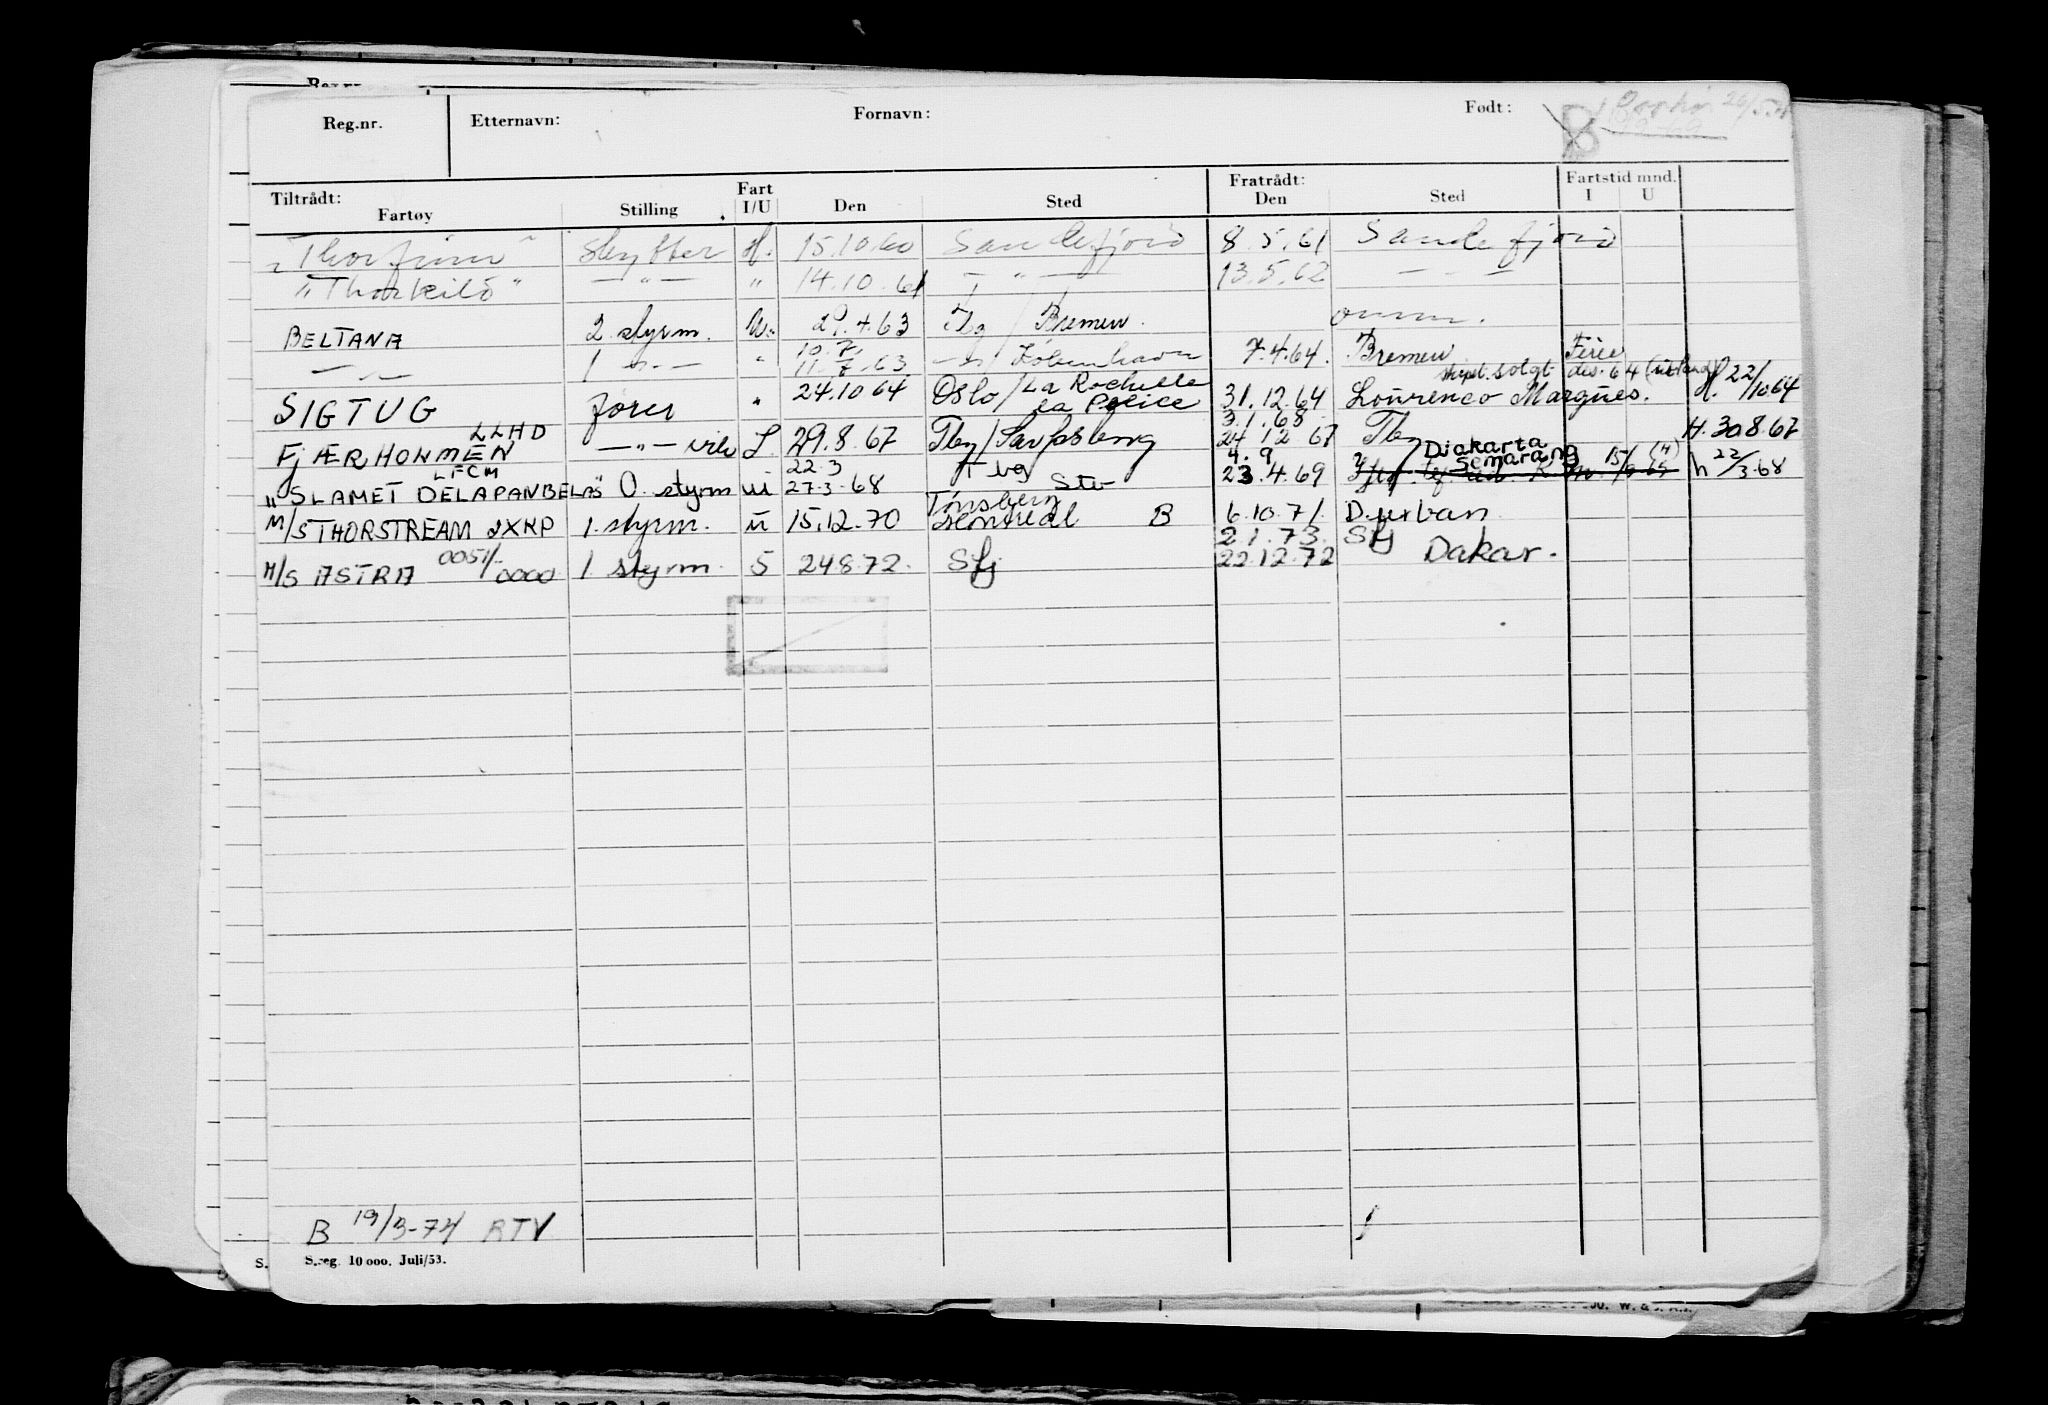 Reg.nr. Etternavn: Fornavn: Født: B 26/5
Tiltrådt: Fartøy Stilling Fart I/U Den Sted Fratrådt: Den Sted Fartstid mnd. I U
"Thorfinn" skytter H. 15.10.60 Sandefjord 8.5.61 Sandefjord
"Thorkild" — " — " 14.10.61 — " — 13.5.62 — " —
BELTANA 2 styrm. U. 29.4.63 Tbg / Bremen. omm.
— " — 1 — " — " 10.7. 11.7.63 — " / København 7.4.64. Bremen Ferie
skipet solgt des. 64 (utland)
SIGTUG fører " 24.10 64 Oslo / La Rochelle La Police 31.12.64 Lourenco Marques. H. 22/10 64
FJÆRHOLMEN LLHD — " — vik S. 29.8.67 Tbg / Sarpsborg 3.1.68 24 12 67 Tbg H. 30 8.67
"SLAMET DELAPANBELAS" LFCM O. styrm u 22.3 27.3.68 Tbg 4.9 23.4.69 Djakarta Semarang h 22/3.68
M/S THORSTREAM JXKP 1. styrm. u 15.12.70 Tønsberg Montreal B 6.10.71. Durban
M/S ASTRA 0051/0000 1. styrm. S 24.8.72. Sfj 2.1.73. Sfj 22.12.72 Dakar.
B 19/3-74 RTV
S.reg. 10 000. Juli/53.